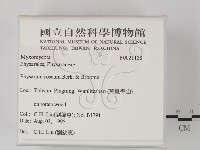 國立自然科學博物館
NATIONAL MUSEUM OF NATURAL SCIENCE
TAICHUNG, TAIWAN, R.O.CHINA
Myxomycota
Physarales, Physaraceae
Physarum roseum Berk. & Broome
Loc.: Taiwan Pingtung
on rotten wood
Col.: C.H.Liu No.:
Date: Aug. 03, 1999
Det.: C.H.Liu
CM